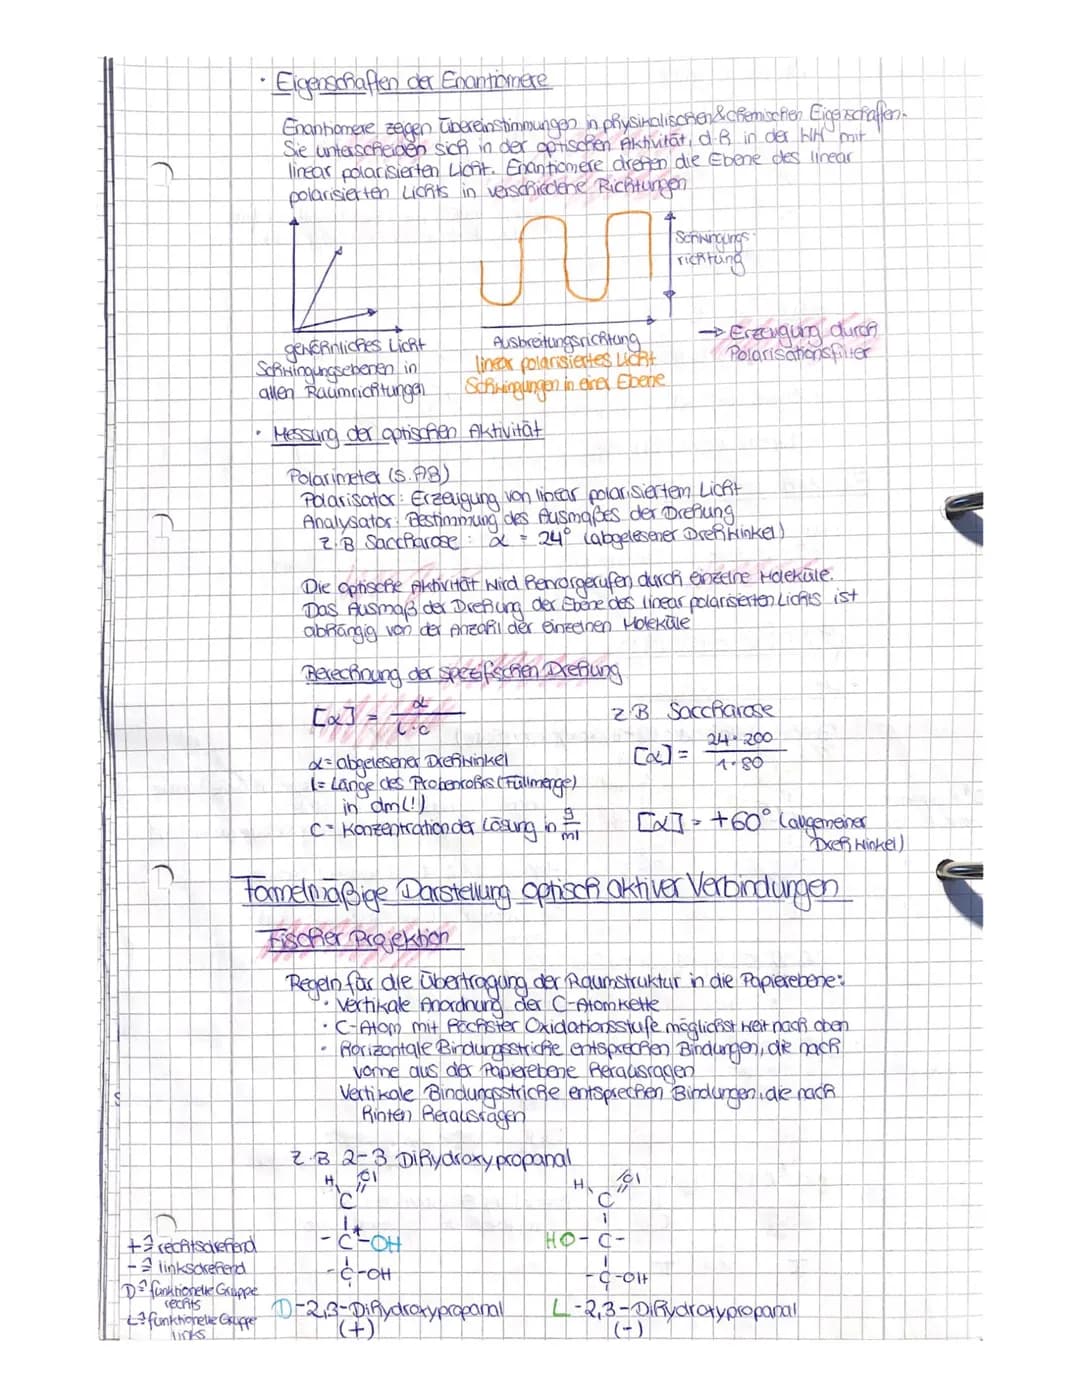 · Eigenschaften der Enantiomere
Enantiomere zeigen Übereinstimmungen in physikalischen & chemischen Eigenschaften.
Sie unterscheiden sich in der optischen Aktivität, d.h in der WW mit
linear polarisierten Licht. Enantiomere drehen die Ebene des linear
polarisierten Lichts in verschiedene Richtungen
Schwingungs-
richtung
gewöhnliches Licht
Schwingungsebenen in
allen Raumrichtungen
Ausbreitungsrichtung
linear polarisiertes Licht
Schwingungen in einer Ebene
→ Erzeugung durch
Polarisationsfilter
· Messung der optischen Aktivität
Polarimeter (s. AB)
Polarisator: Erzeugung von linear polarisiertem Licht
Analysator: Bestimmung des Ausmaßes der Drehung
z.B Saccharose: α = 24° (abgelesener Drehwinkel)
Die optische Aktivität wird hervorgerufen durch einzelne Moleküle.
Das Ausmaß der Drehung der Ebene des linear polarisierten Lichts ist
abhängig von der Anzahl der einzelnen Moleküle
Berechnung der spezifischen Drehung
[α] = α / l·c
α = abgelesener Drehwinkel
l = Länge des Probenrohrs (Füllmenge)
in dm(!)
c = Konzentration der Lösung in g/ml
z B Saccharose
[α] = 24·200 / 1·80
[α] = +60° (allgemeiner
Drehwinkel)
Formelmäßige Darstellung optisch aktiver Verbindungen
Fischer Projektion
Regeln für die Übertragung der Raumstruktur in die Papierebene:
· Vertikale Anordnung der C-Atomkette
· C-Atom mit höchster Oxidationsstufe möglichst weit nach oben
· horizontale Bindungsstriche entsprechen Bindungen, die nach
vorne aus der Papierebene herausragen
Vertikale Bindungsstriche entsprechen Bindungen, die nach
hinten herausragen
z.B 2-3 Dihydroxypropanal
H O
C
-C*-OH
-C-OH
D-2,3-Dihydroxypropanal
(+)
H O
C
HO-C-
-C-OH
L-2,3-Dihydroxypropanal
(-)
+ ≙ rechtsdrehend
- ≙ linksdrehend
D ≙ funktionelle Gruppe
rechts
L ≙ funktionelle Gruppe
links